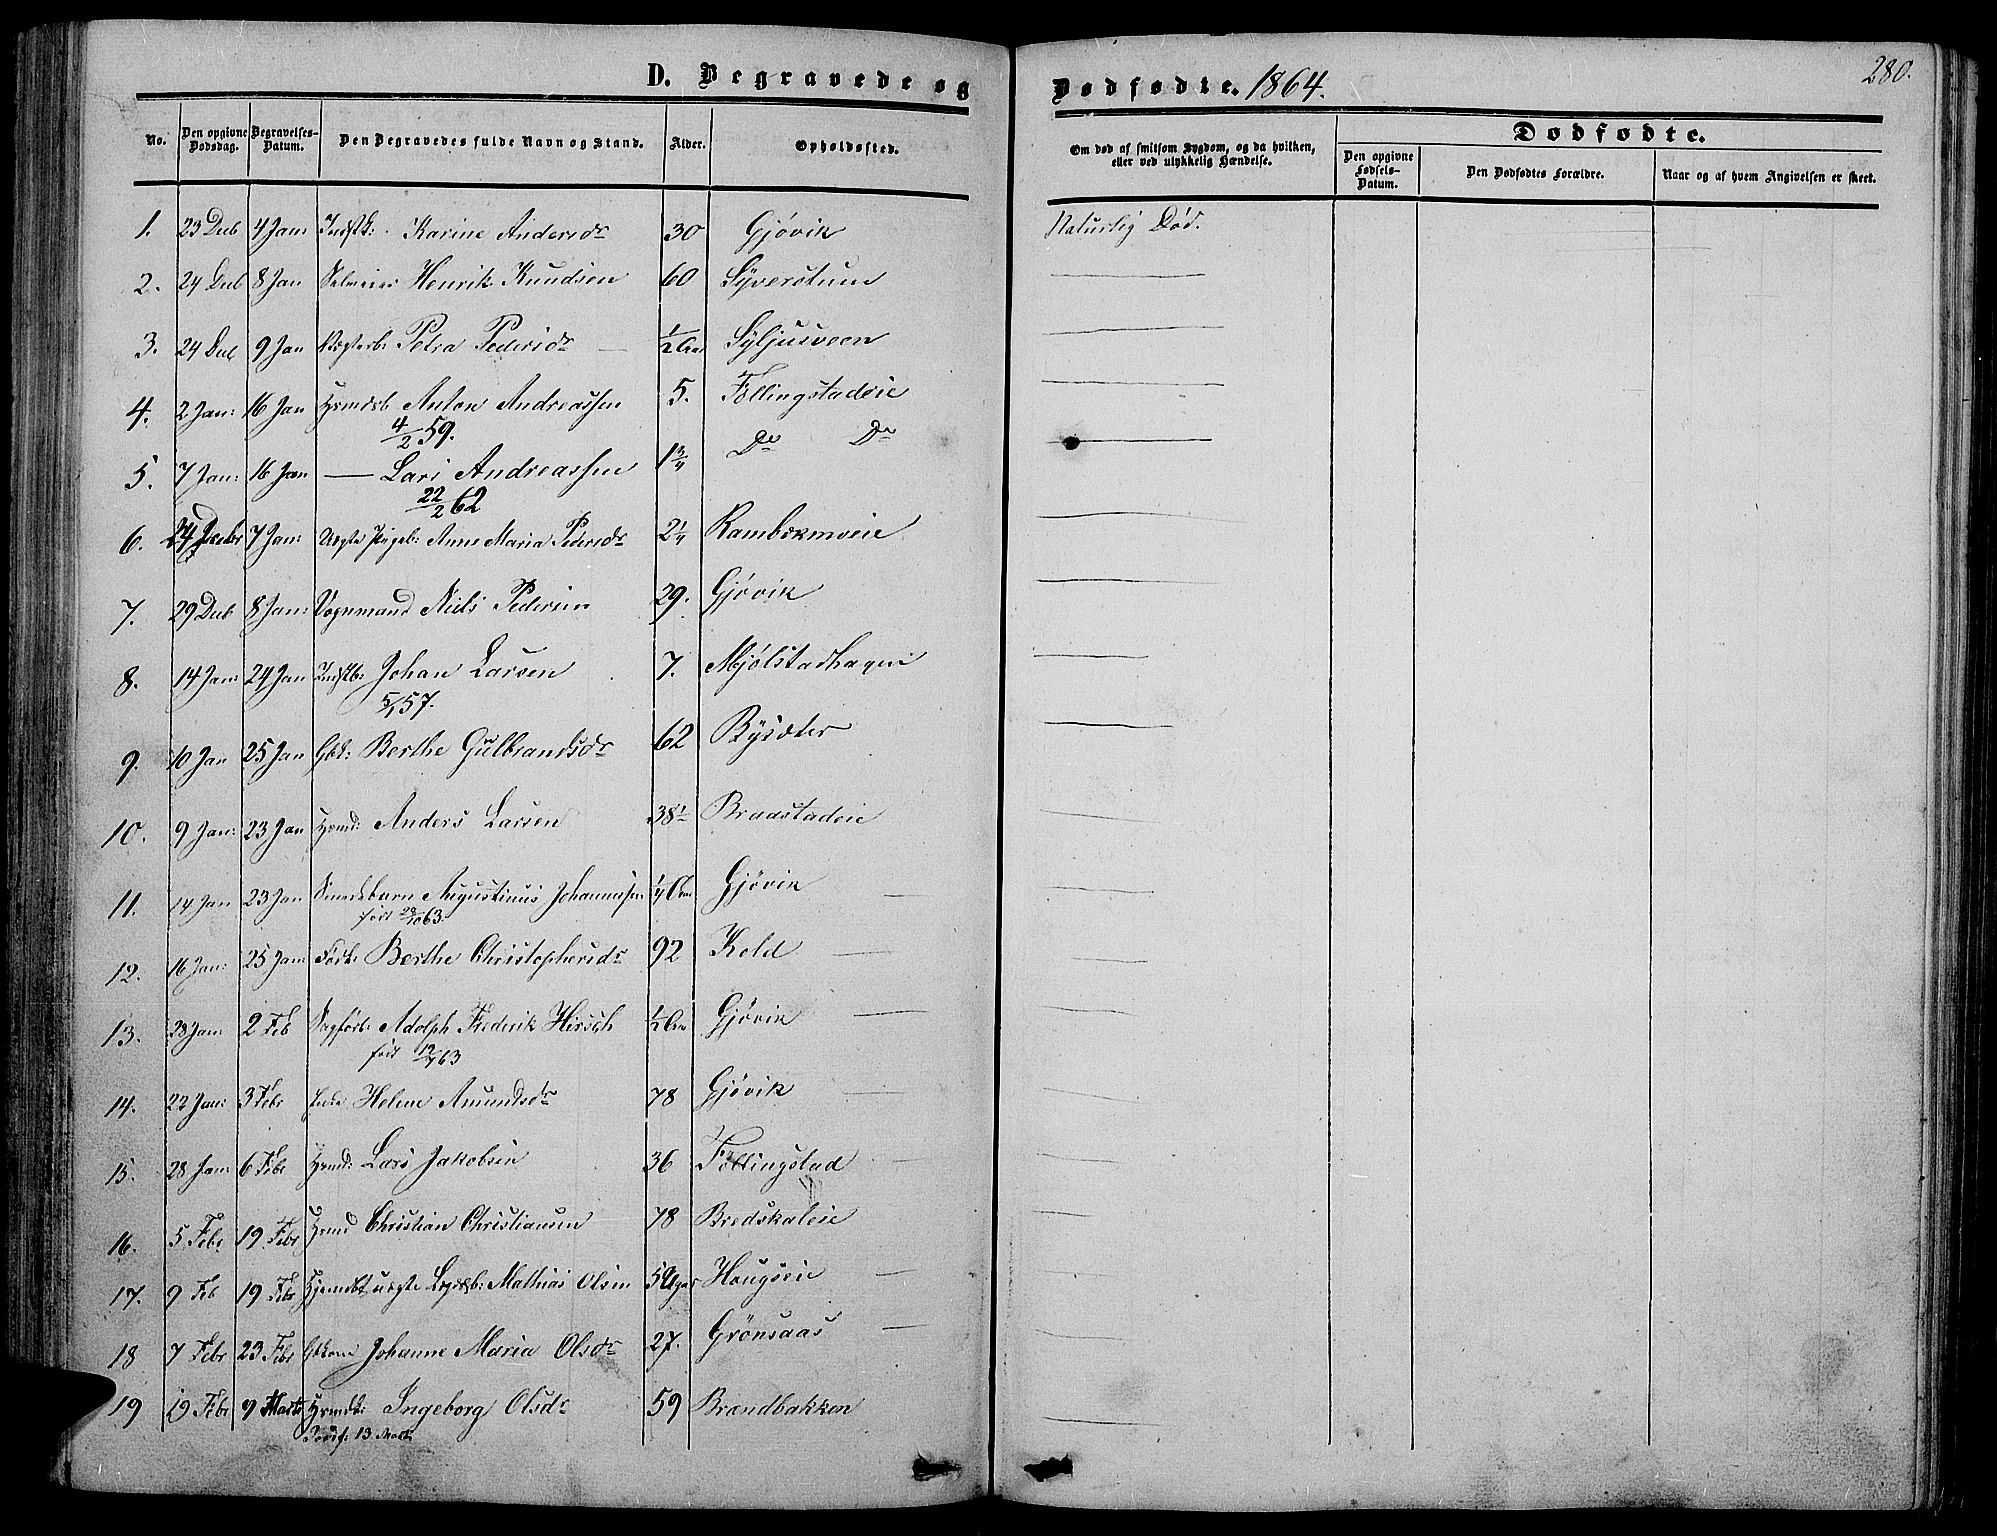 D. Begravede og Dødfødte. 1864. 280.
No. Den opgivne Dødsdag. Begravelses-Datum. Den Begravedes fulde Navn og Stand. Alder. Opholdssted. Om død af smitsom Sygdom, og da hvilken, eller ved ulykkelig Hændelse. Dødfødte.
Den opgivne Fødsels-Datum. Den Dødfødtes Forældre. Naar og af hvem Angivelsen er skeet.
1. 23 Deb 4 Jan: Indstk: Karine Andersdr 30 Gjøvik Naturlig Død.
2. 24 Deb 8 Jan Selveier Henrik Knudsen 60 Syverstuen
3. 24 Deb 9 Jan Petra Pedersdr 1/2 Aar Syljusveen
4. 2 Jan: 16 Jan Hsmdsb Anton Andreassen 5. Føllingstadeie
4/2 59.
5. 7 Jan: 16 Jan — Lars Andreassen 1 3/4 Do Do
22/2 62
6. 24 7 Jan: Uegte Pigeb: Anne Maria Pedersdr 2 1/4 Rambekmoeie
7. 29 Deb 8 Jan: Vognmand Niels Pedersen 29. Gjøvik
8. 14 Jan: 24 Jan Indstb: Johan Larsen 7. Mjølstadhagen
5/1 57.
9. 10 Jan 25 Jan Gbk: Berthe Gulbrandsdr 62 Bysæter
10. 9 Jan: 23 Jan Hsmd: Anders Larsen 38 1/2 Braastadeie
11. 14 Jan 23 Jan Smedebarn Augustinus Johannesen 1/4 Aar Gjøvik
født 29/10 63.
12. 16 Jan: 25 Jan: Berthe Christophersdr 92 Kold
13. 28 Jan: 2 Feb Sagførb: Adolph Frederik Hirsch 1/2 Aar Gjøvik
født 12/7 63
14. 22 Jan: 3 Febr Enke Helene Amundsdr 78 Gjøvik
15. 28 Jan: 6 Febr Hsmd: Lars Jakobsen 36 Føllingstad
16. 5 Febr 19 Febr Hsmd Christian Christiansen 78 Bredskaleie
17. 9 Feb 19 Feb uegte Mathias Olsen 5 Uger Haugseie
18 7 Febr 23 Febr Gbkone Johanne Maria Olsdr 27. Grønsaas
19 19 Febr 9 Marts Hsmdk: Ingeborg Olsdr 59 Brandbakken
Jordf: 13 Marts